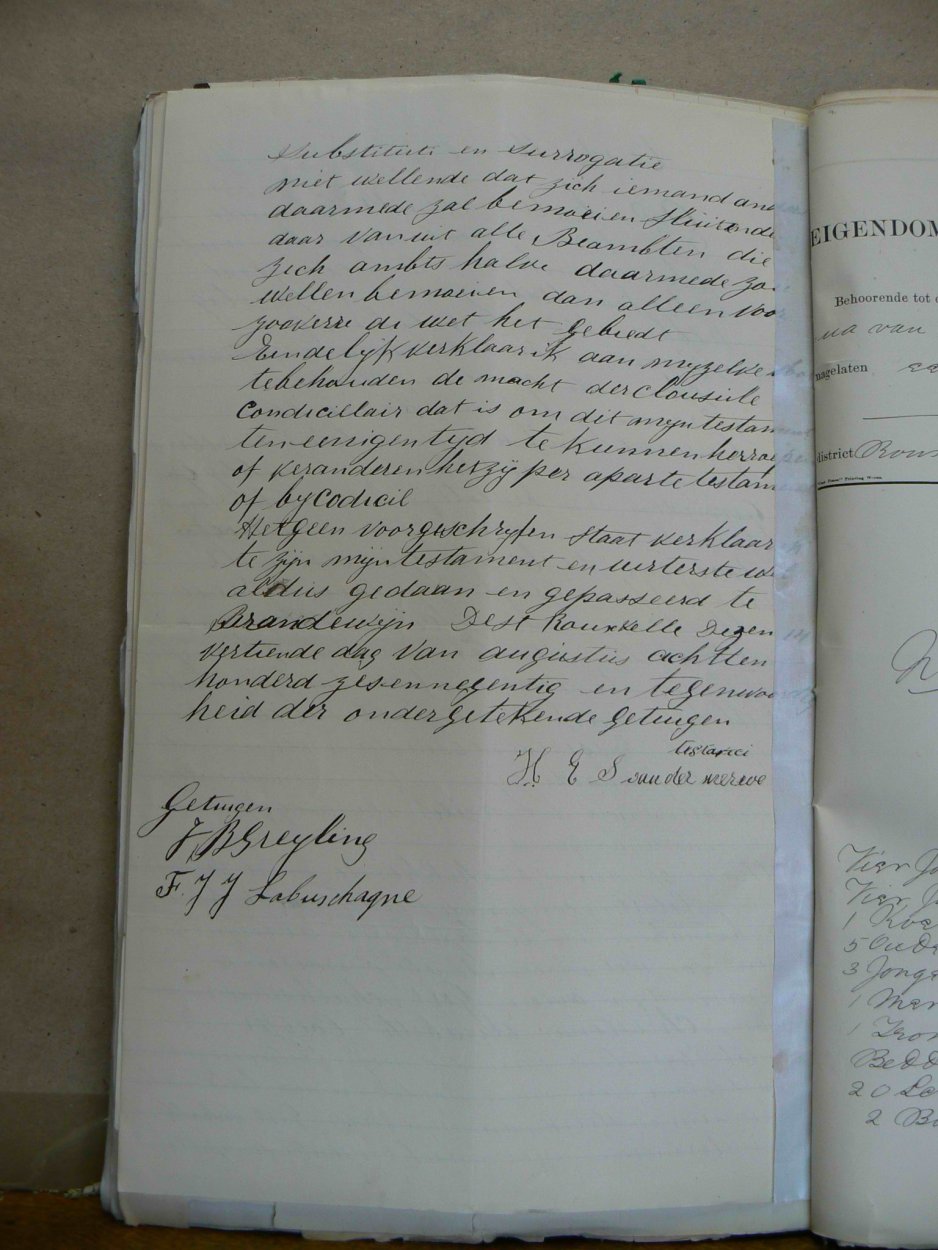 Substituti en Surrogatie
niet wellende dat zich iemand and
daarmede zal bemoeien Sluitende
daar van uit alle Beambten die
zich ambts halve daarmede zou
wellen bemoeien dan alleen voor
zooverre de wet het gebiedt
Eindelijk verklaar ik aan myzelve
tebehouden de macht der Clousule
Condicillair dat is om dit myn testam
ten eenigen tyd te kunnen herroe
of veranderen hetzij per aparte testam
of by Codicil
Hetgeen voorgeschryfen staat verklaar
te zijn mijn testament en uiterste wil
aldus gedaan en gepasseerd te
Brandewijn Dest Rouxville Dezen
Vertiende dag van augustus achtten
honderd zesennegentig en tegenwoor
heid der ondergetekende getuigen
testatrici
H E S van der merwe
Getuigen
J B Greyling
F. J J Labuschagne
EIGENDOM
Behoorende tot
na van
nagelaten
district Roux
Vier Jo
Vier
1 Koe
5 Oude
3 Jonge
1 Mer
1
Bedd
20 Le
2